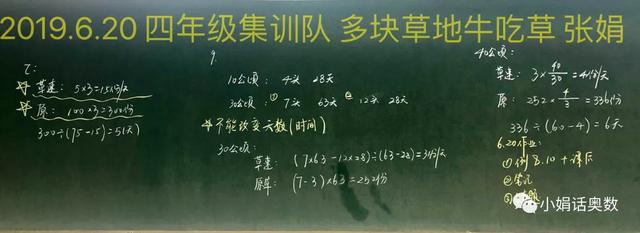 2019.6.20 四年级集训队 多块草地牛吃草 张娟
7:
草速: 5×3=15份/天
原: 100×3=300份
300÷(75-15)=5(天)
9.
10公顷: 4天 28天
30公顷: ① 7天 63天 ② 12天 28天
不能改变天数(时间)
30公顷:
草速: (7×63-12×28)÷(63-28)=3份/天
原草: (7-3)×63=252份
40公顷:
草速: 3×40/30=4份/天
原: 252×4/3=336份
336÷(60-4)=6天
6.20作业:
①例8.10+课后
②笔记
小娟话奥数